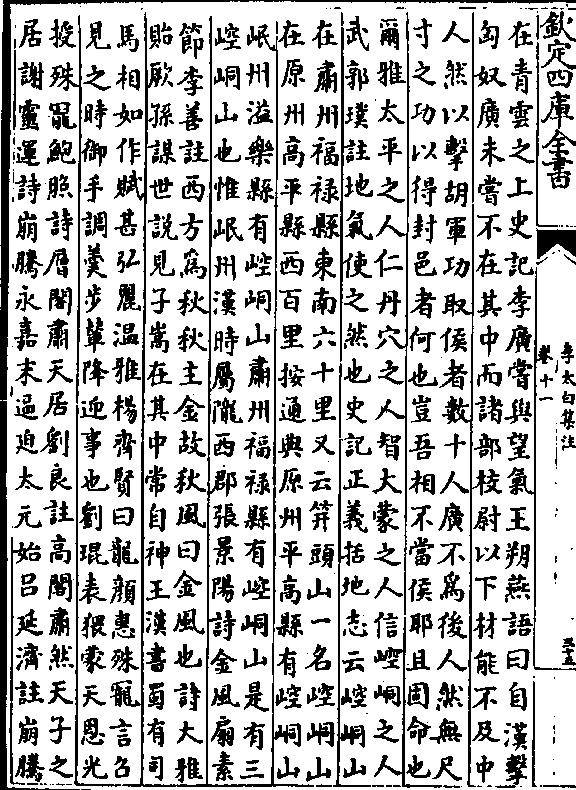 欽定四庫全書
李太白集注
卷十一
在青雲之上史記李廣嘗與望氣王朔燕語曰自漢擊
匈奴廣未嘗不在其中而諸部校尉以下材能不及中
人然以擊胡軍功取侯者數十人廣不為後人然無尺
寸之功以得封邑者何也豈吾相不當侯耶且固命也
爾雅太平之人仁丹穴之人智大蒙之人信崆峒之人
武郭璞註地氣使之然也史記正義括地志云崆峒山
在肅州福禄縣東南六十里又云笄頭山一名崆峒山
在原州高平縣西百里按通典原州平高縣有崆峒山
岷州溢樂縣有崆峒山肅州福禄縣有崆峒山是有三
崆峒山也惟岷州漢時屬隴西郡張景陽詩金風扇素
節李善註西方為秋秋主金故秋風曰金風也詩大雅
貽厥孫謀世説見子嵩在其中常自神王漢書蜀有司
馬相如作賦甚弘麗温雅楊齊賢曰龍顔惠殊寵言召
見之時御手調羹步輦降迎事也劉琨表猥蒙天恩光
投殊寵鮑照詩層閣肅天居劉良註高閣肅然天子之
居謝靈運詩崩騰永嘉末逼迫太元始吕延濟註崩騰